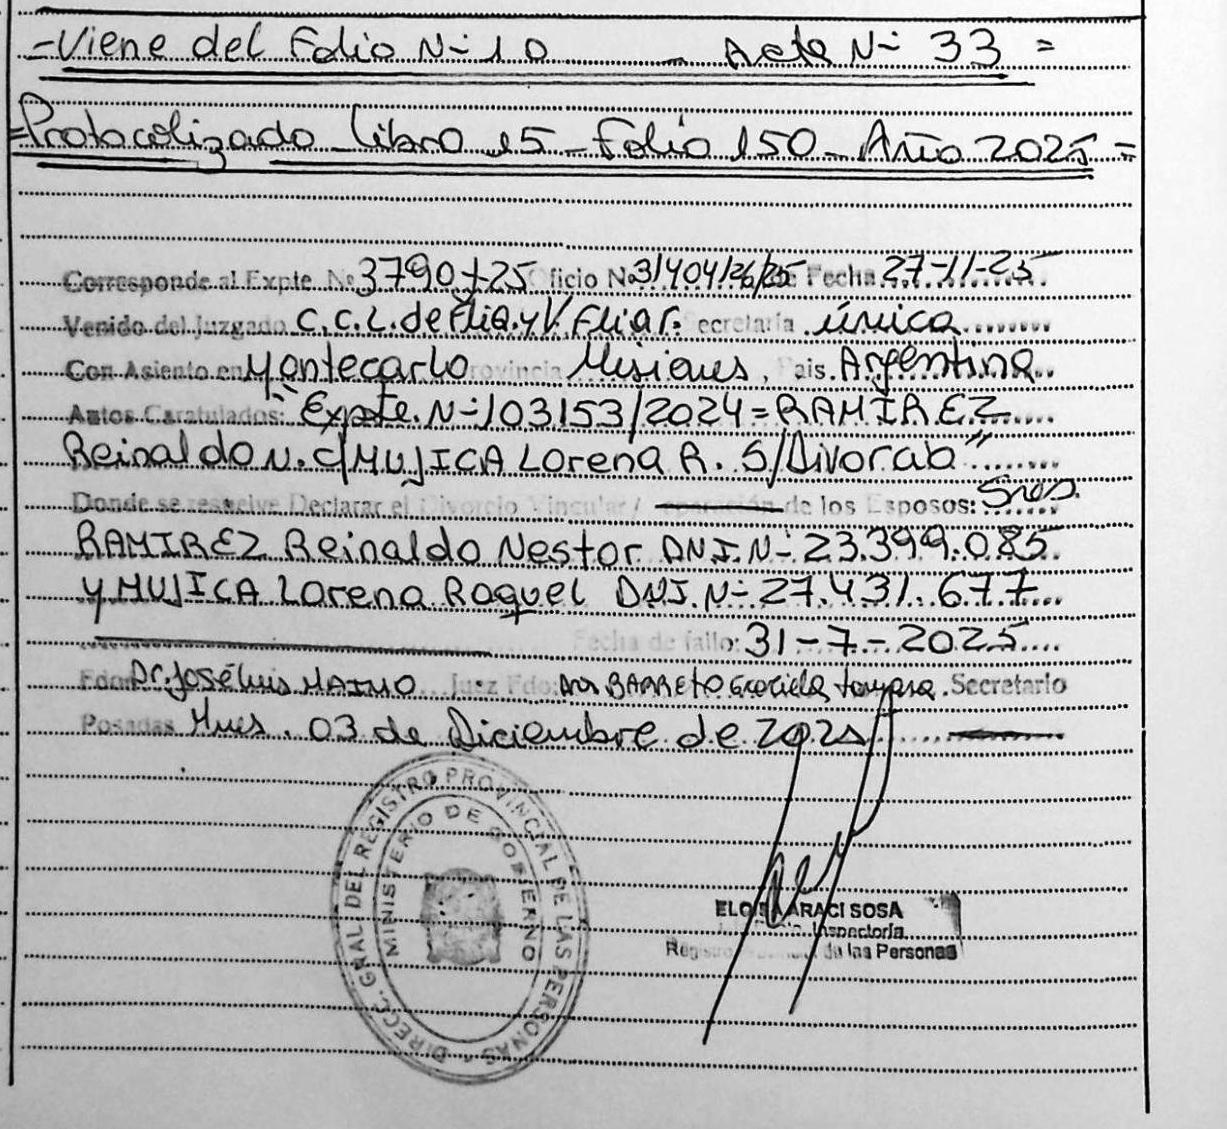 =Viene del Folio Nº 10 _ Acta Nº 33=
=Protocolizado-Libro 15-Folio 150-Año 2025=
Corresponde al Expte. Nº 3790/25 Oficio Nº 31404/26/25 de Fecha 27-11-25
Venido del Juzgado C.C.L. de Flia. y V. Fliar. Secretaría única
Con Asiento en Montecarlo Provincia Misiones, Pais. Argentina
Autos Caratulados: "Expte. Nº 103153/2024=RAMÍREZ
Reinaldo N. C/MUJICA Lorena R. S/Divorcio"
Donde se resuelve Declarar el Divorcio Vincular / separación de los Esposos: Sres.
RAMIREZ Reinaldo Nestor DNI. Nº 23.399.085.
y MUJICA Lorena Raquel DNI. Nº 27.431.677
Fecha de fallo: 31-7-2025
Fdo: Dr. José Luis Juez Fdo: Dra BARRETO Graciela Secretario
Posadas Mnes. 03 de Diciembre de 2025
DIRECC. GRAL. DEL REGISTRO PROVINCIAL DE LAS PERSONAS
MINISTERIO DE GOBIERNO
ELOISA ARACI SOSA
Inspectoría
Registro de las Personas